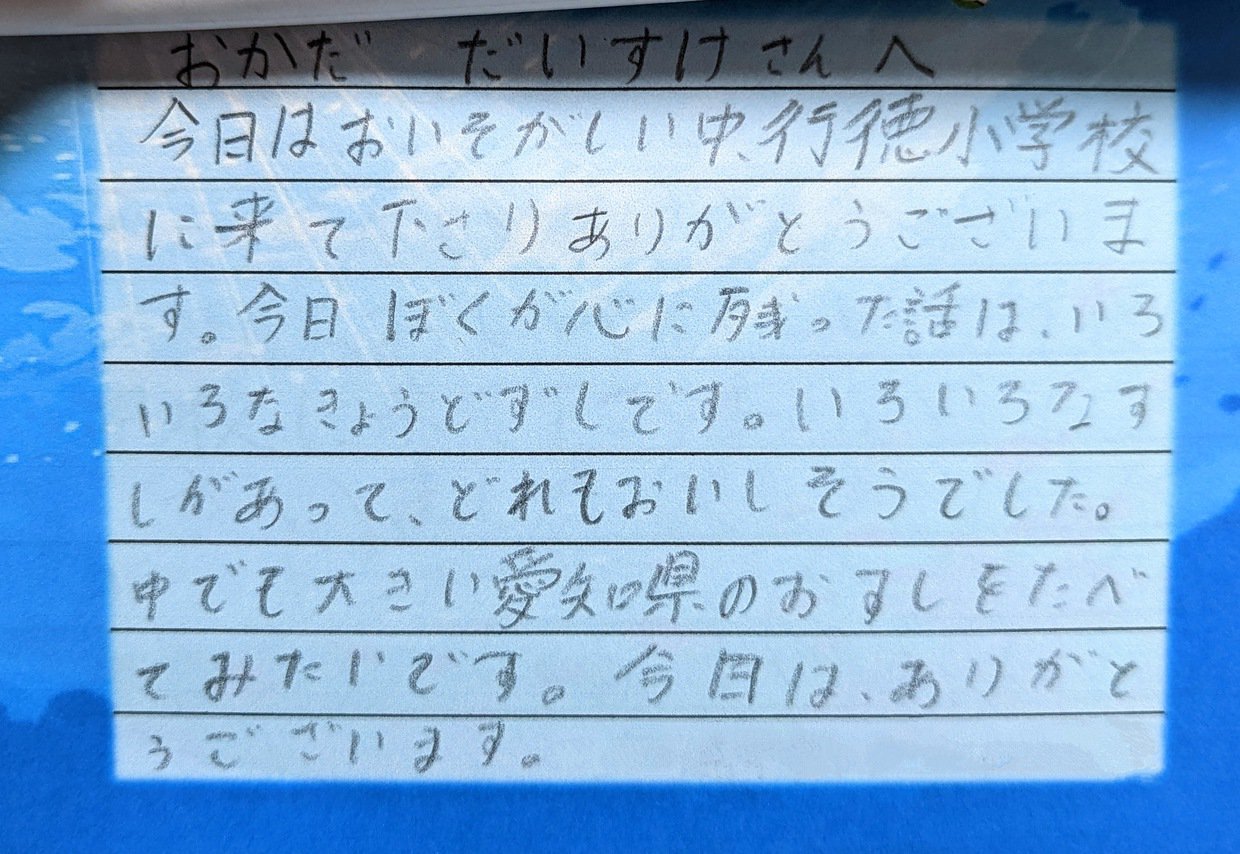 おかだ だいすけさんへ
今日はおいそがしい中、行徳小学校
に来て下さりありがとうございま
す。今日ぼくが心に残った話は、いろ
いろなきょうどずしです。いろいろなす
しがあって、どれもおいしそうでした。
中でも大きい愛知県のおすしをたべ
てみたいです。今日は、ありがと
うございます。